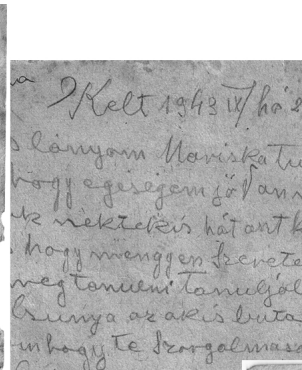 Kelt 1943 IX/hó
lányom Mariska tu
hogy egéségem jól van
k néktekis hát ant k
hogy mennyen szerete
megtanueni tanuljál
Csunya az akis buta
m hogy te szorgalmas